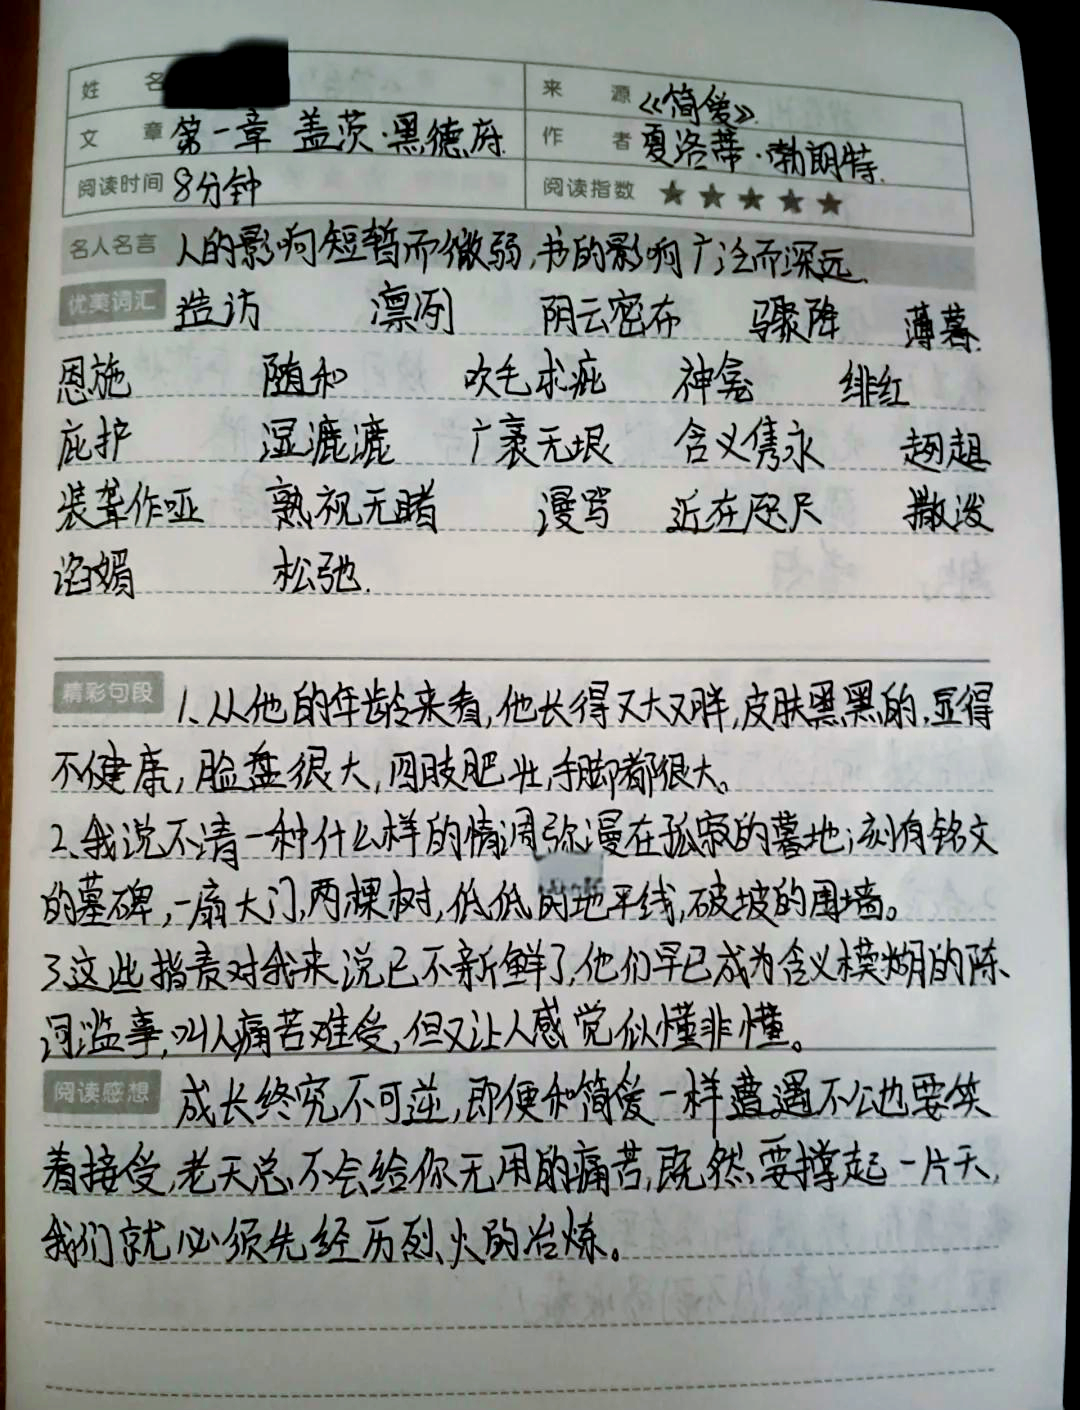 姓 名 来 源 《简爱》
文 章 第一章 盖茨·黑德府 作 者 夏洛蒂·勃朗特
阅读时间 8分钟 阅读指数 ★★★★★
名人名言 人的影响短暂而微弱,书的影响广泛而深远.
优美词汇 造访 凛冽 阴云密布 骤降 薄暮
恩施 随和 吹毛求疵 神龛 绯红
庇护 湿漉漉 广袤无垠 含义隽永 趔趄
装聋作哑 熟视无睹 谩骂 近在咫尺 撒泼
谄媚 松弛.
精彩句段 1、从他的年龄来看,他长得又大又胖,皮肤黑黑的,显得
不健康,脸盘很大,四肢肥壮,手脚都很大。
2、我说不清一种什么样的情调弥漫在孤寂的墓地;刻有铭文
的墓碑,一扇大门,两棵树,低低的地平线,破坡的围墙。
3、这些指责对我来说已不新鲜了,他们早已成为含义模糊的陈
词滥事,叫人痛苦难受,但又让人感觉似懂非懂。
阅读感想 成长终究不可逆,即便和简爱一样遭遇不公也要笑
着接受,老天总不会给你无用的痛苦,既然要撑起一片天,
我们就必须先经历烈火的冶炼。